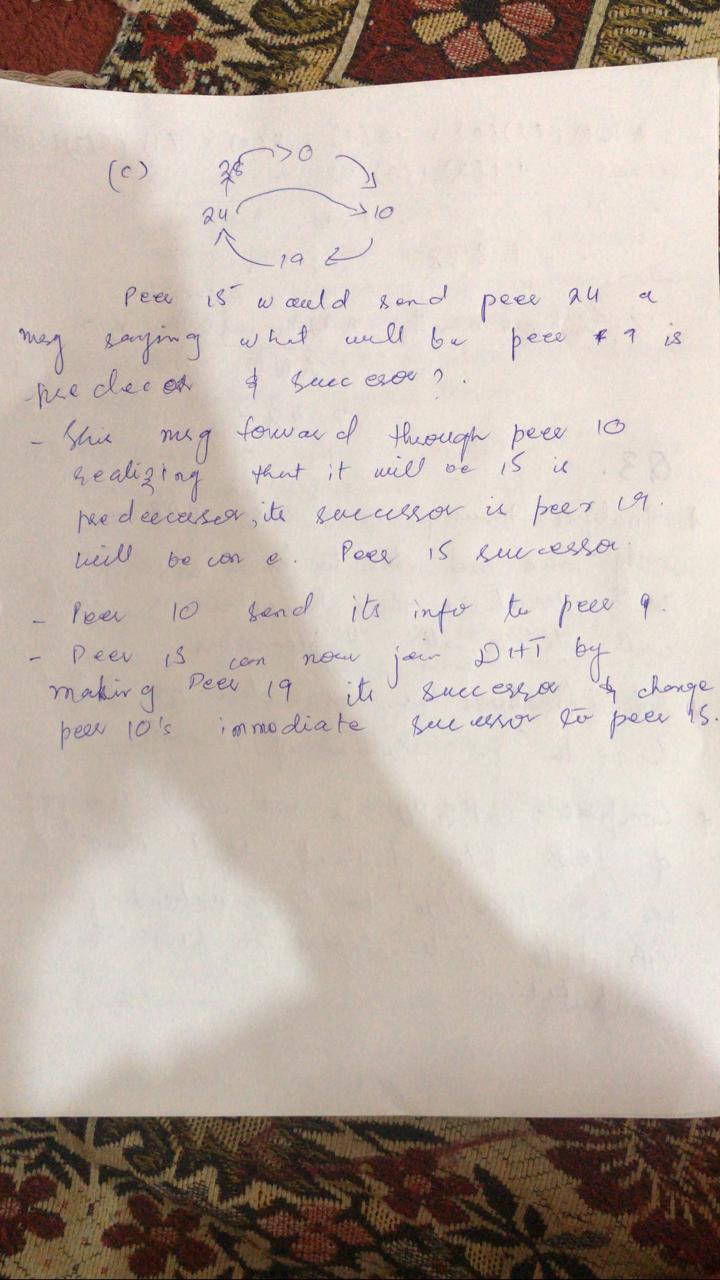 (C) 28 0
24 10
19
Peer 15 would send peer 24 a
msg saying what will be peer 9 is
predecor & succesor?.
- This msg forward through peer 10
realizing that it will be 15 is
predecessor, its successor is peer 19.
will become. Peer 15 successor.
- Peer 10 send its info to peer 9.
- Peer 15 can now join DHT by
making Peer 19 its successor & change
peer 10's immediate successor to peer 15.